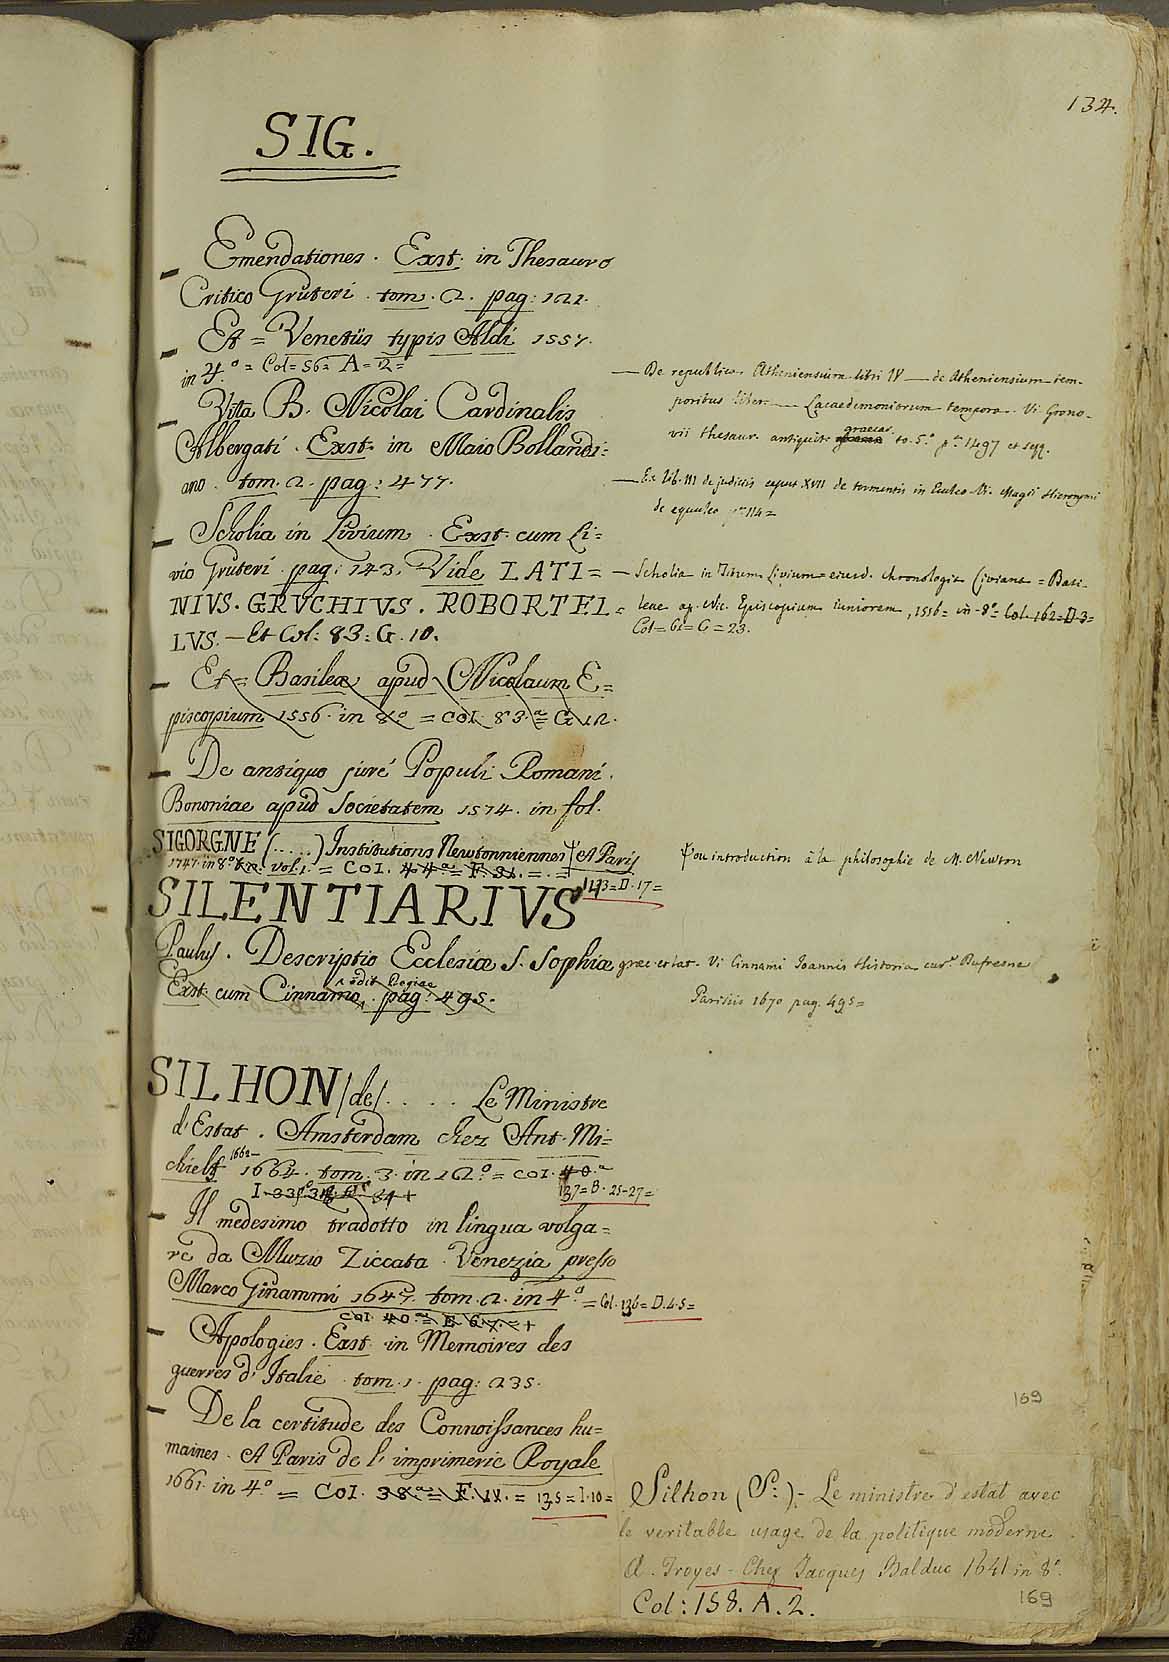 134.
SIG.
Emendationes. Exst. in Thesauro
Critico Gruteri. tom. 2. pag: 121.
Et = Venetiis typis Aldi 1557.
in 4.º = Col = 56 = A = 12 =
Vita B. Nicolai Cardinalis
Albergati. Exst. in Maio Bollandi=
ano. tom. 2. pag: 477.
Scholia in Livium. Exst. cum Li=
vio Gruteri. pag: 143. Vide LATI=
NIVS. GRVCHIVS. ROBORTEL=
LVS. — Et Col: 83: G. 10.
Et = Basileæ apud Nicolaum E=
piscopium 1556. in 8.º = COI. 83.ª = G. 12.
De antiquo jure Populi Romani.
Bononiae apud Societatem 1574. in fol.
SIGORGNE (.....) Institutions Newtonniennes A Paris
1747. in 8º vol. = COI. 44.ª =
143 = D. 17 =
SILENTIARIVS
Paulus. Descriptio Ecclesiæ S. Sophiæ
Exst. cum Cinnamo, edit. Regiae pag: 495.
SILHON (de) .... Le Ministre
d'Estat. Amsterdam chez Ant. Mi=
chiels 1662 - 1664. tom. 3. in 12º. = COI. 40.ª
137 = B. 25-27 =
Il medesimo tradotto in lingua volga=
re da Muzio Ziccata. Venezia presso
Marco Ginammi 1647. tom. 2. in 4.º = Col. 136 = D. 4.5 =
COI. 40.ª = E. 6.7. = +
Apologies. Exst. in Memoires des
guerres d'Italie. tom. 1. pag: 235.
De la certitude des Connoissances hu=
maines. A Paris de l'imprimerie Royale
1661. in 4.º = COI. 38.ª = F. = 135 = I. 10 =
— De republica Atheniensium libri IV — de Atheniensium tem-
poribus liber — Lacaedemoniorum tempora. Vi Grono-
vii thesaur. antiquit. graecar. to. 5.º p.ª 1497 et seqq.
— Ex lib. III de judiciis caput XVII de tormentis in Eculeo Vi. Magii Hieronymi
de equuleo p.ª 114 =
— Scholia in Titum Livium = eiusd. Chronologia Liviana = Basi-
leae ap. Nic. Episcopium iuniorem, 1556 = in 8º = Col. 162 = D 3 =
Col = 61 = G = 23.
ou introduction à la philosophie de M. Newton
graec. et lat. Vi Cinnami Joannis Historia cur.ª Dufresne
Parisiis 1670 pag. 495 =
169
Silhon (S.r) - Le ministre d'estat avec
le veritable usage de la politique moderne
A. Troyes - Chez Jacques Balduc 1641 in 8º.
Col: 158. A. 2.
169